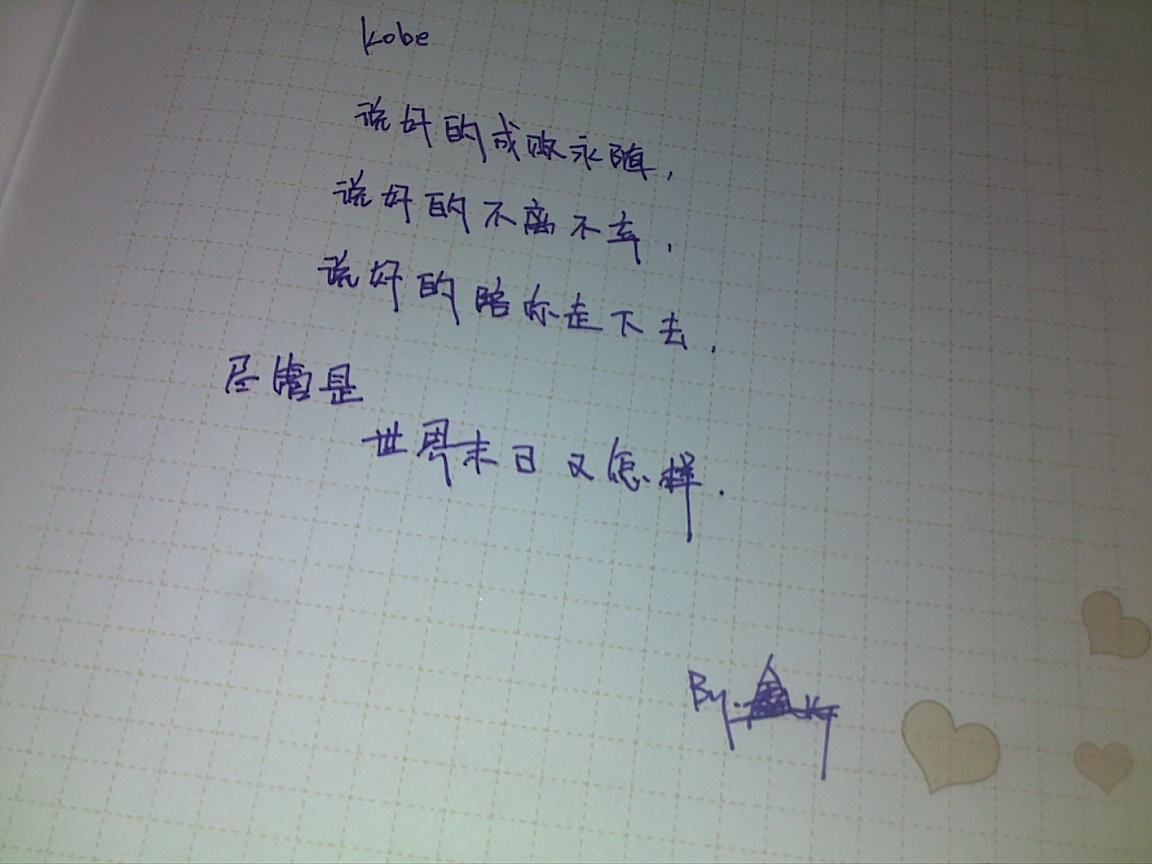 Kobe
说好的成败永随，
说好的不离不弃，
说好的陪你走下去．
尽管是
世界末日又怎样．
By.